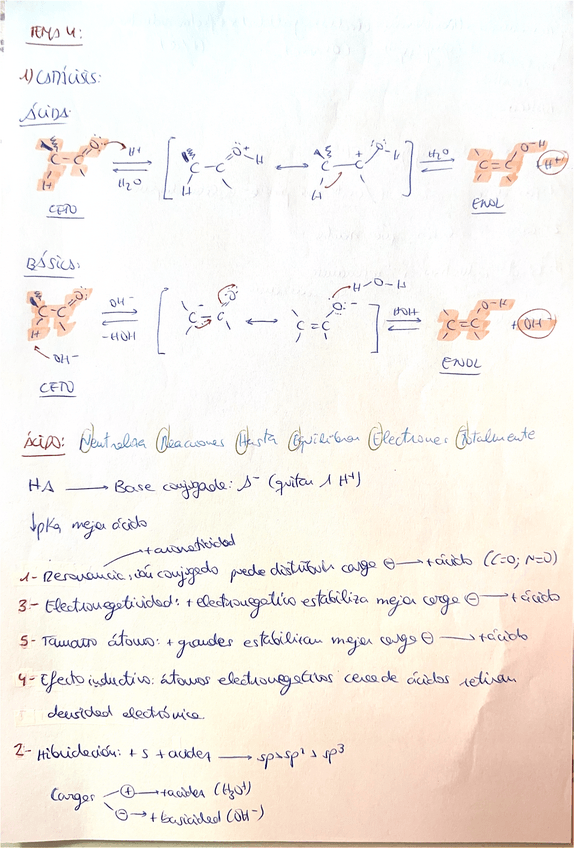 TEMA 4:
1) CATÁLISIS:
ÁCIDA:
H+
H2O
H2O
H+
CETO
ENOL
BÁSICA:
OH-
-HOH
H-O-H
HOH
+ OH-
OH-
CETO
ENOL
ÁCIDO: Neutraliza Reacciones Hasta Equilibrar Electrones Totalmente
HA → Base conjugada: A- (quitar 1 H+)
↓pKa mejor ácido
+ aromaticidad
1- Resonancia: ión conjugado puede distribuir carga ⊖ → + ácido (C=O; N=O)
3- Electronegatividad: + electronegativo estabiliza mejor carga ⊖ → + ácido
5- Tamaño átomo: + grandes estabilizan mejor carga ⊖ → + ácido
4- Efecto inductivo: átomos electronegativos cerca de ácidos retiran
densidad electrónica.
2- Hibridación: + s + acidez → sp > sp2 > sp3
Cargas ⊕ → + acidez (H3O+)
⊖ → + basicidad (OH-)